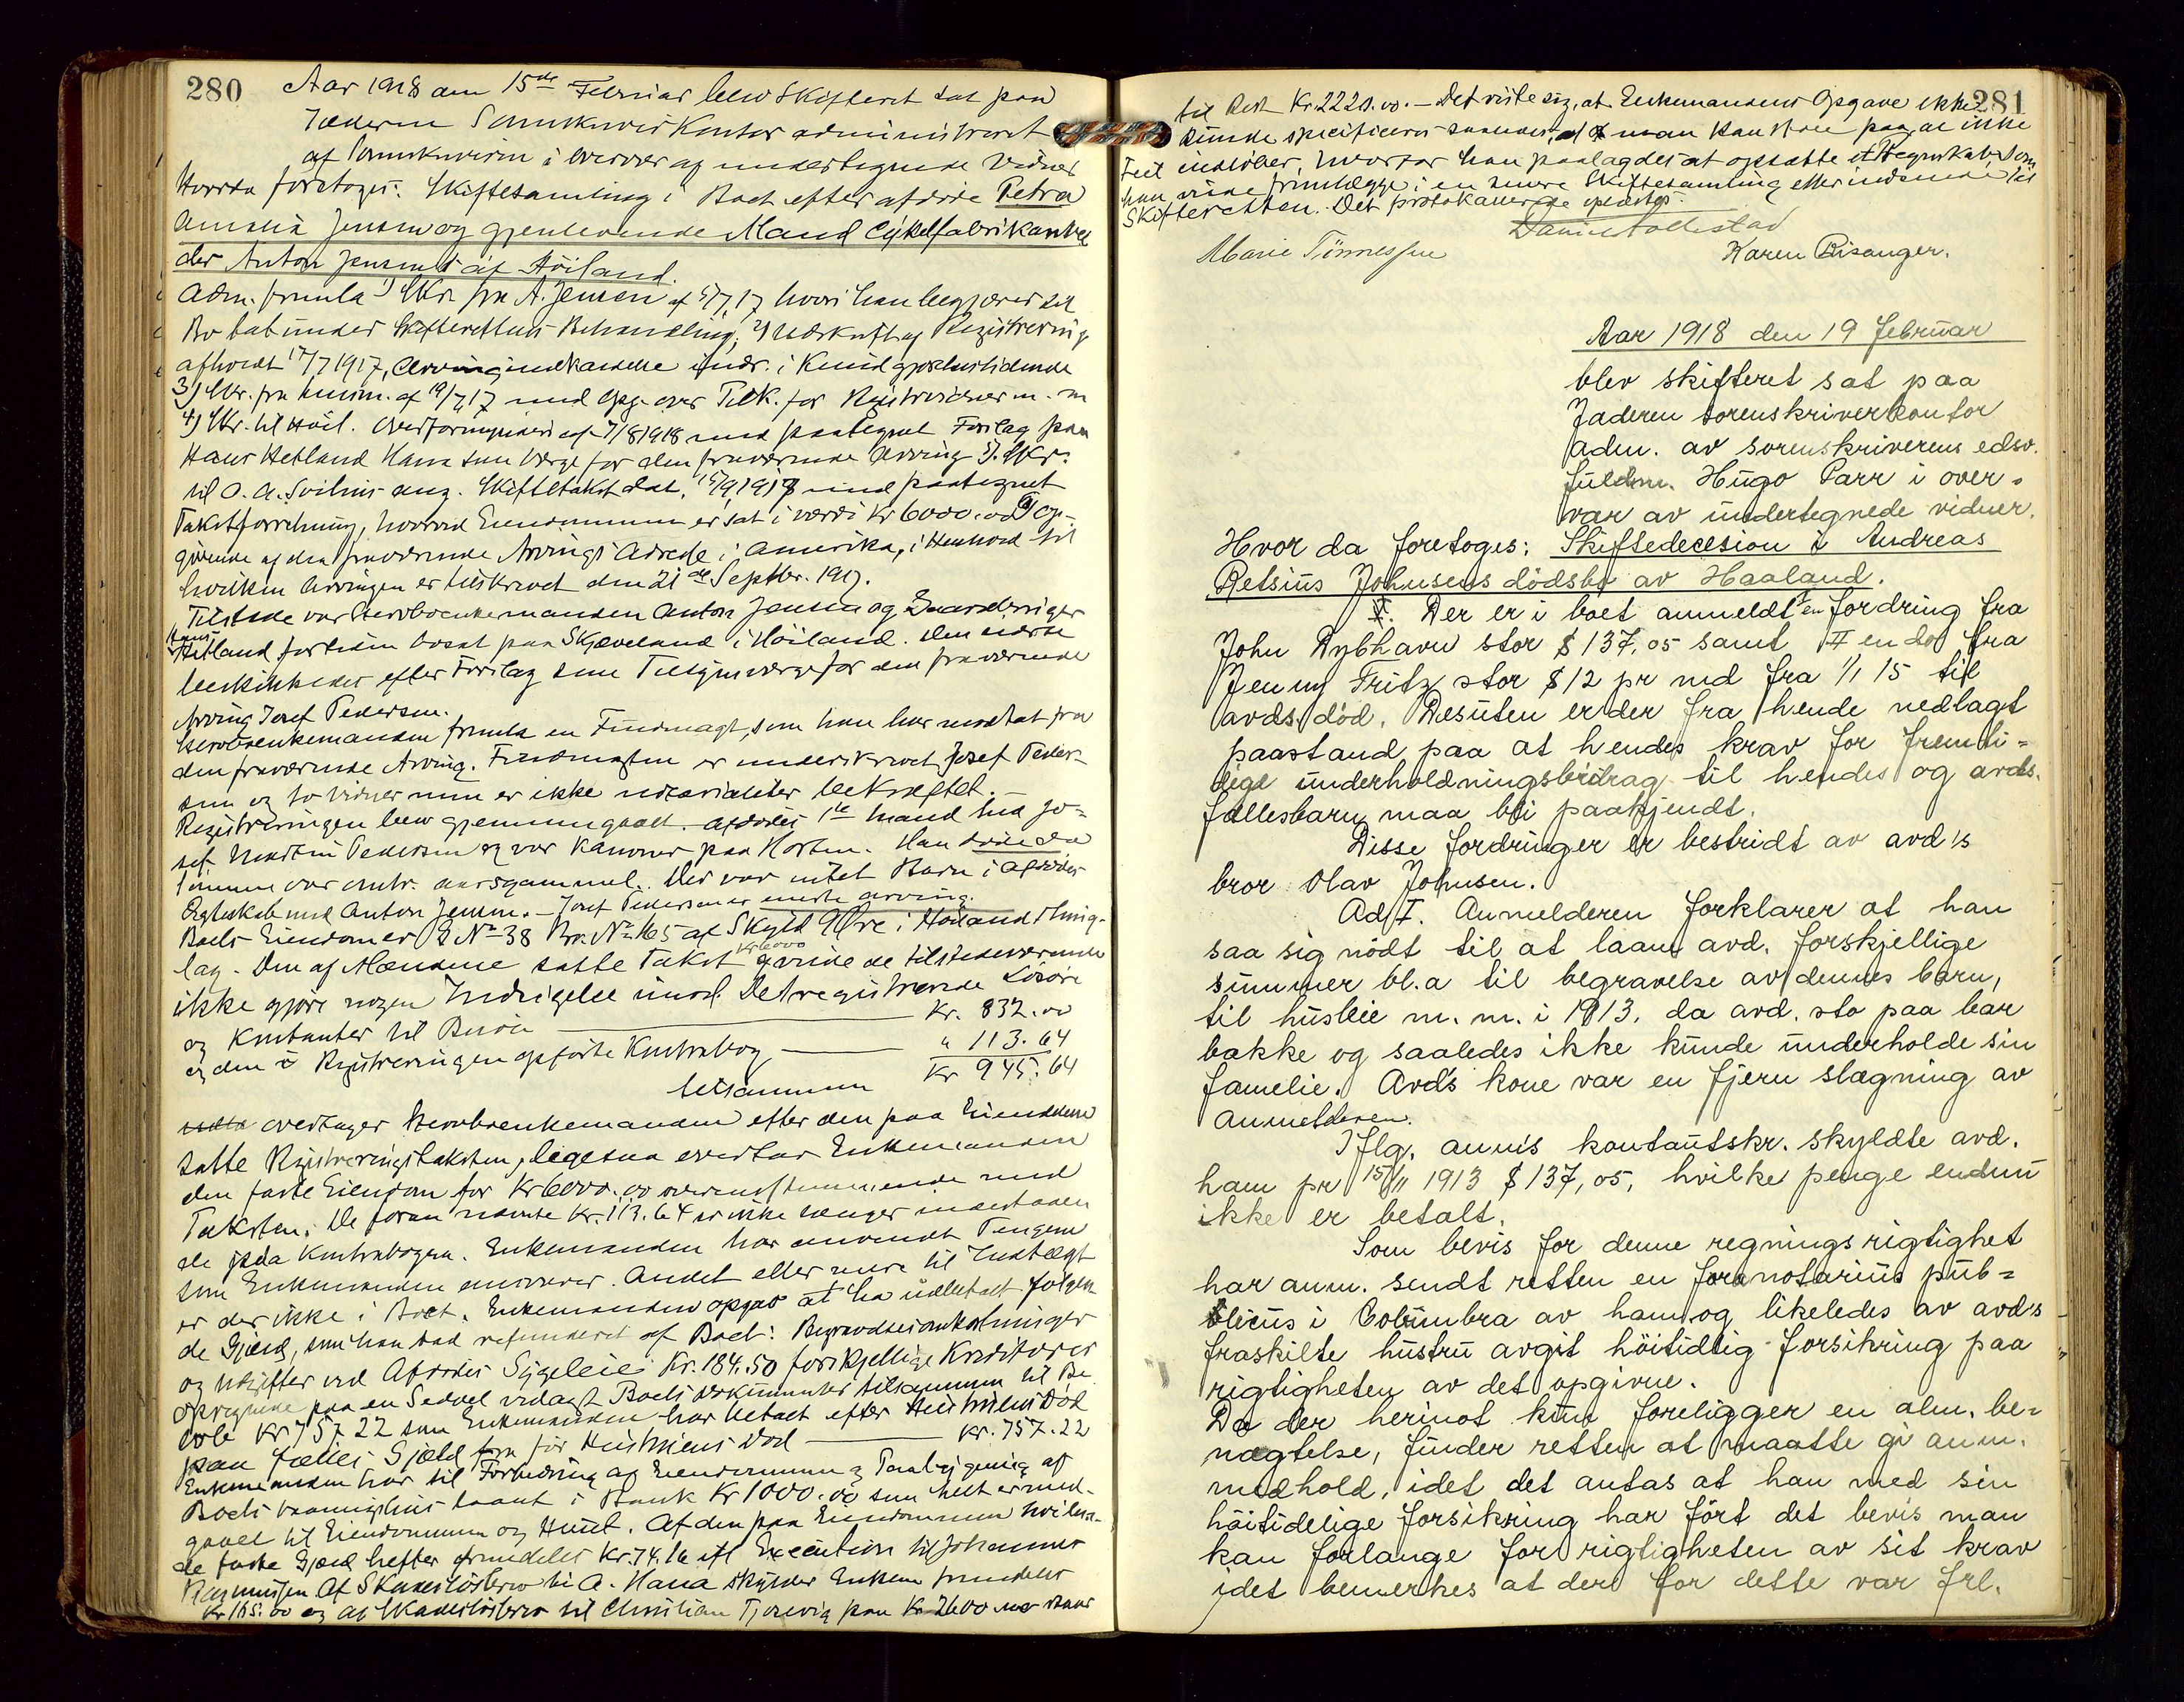 280
Aar 1918 den 15de Februar blev Skifteret sat paa
Jæderen Sorenskriverkontor administreret
af Sorenskriveren i Overvær af undertegnede Vidner
Hvorda foretoges: Skiftesamling i Boet efter afdøde Petra
Amalia Jensen og gjenlevende Mand Cykelfabrikant
Anton Jensen af Höiland.
Adm. fremla 1) Skr. fra A. Jensen af 5/7 17 hvori han begjærer sit
Bo tat under Skifterettens Behandling, 2) Udskrift af Registrering
afholdt 17/7 1917, Arvingindkaldelse indr. i Kundgjørelsestidende
3) Skr. fra Lensm. af 19/7 17 med Opg. over Tilk. for Registrvidner m. m
4) Skr. til Höil. Overformynderi af 7/8 1918 med paategnet Forslag paa
Hans Hetland Hana som Værge for den fraværende Arving 5). Skr.
til O. A. Svilins ang. Skiftetakst dat. 15/9 1917 med paategnet
Takstforretning, hvorved Eiendommen er sat i værdi Kr 6000.00 6) Op-
givende af den fraværende Arvings Adresse i Amerika, i Henhold til
hvilken Arvingen er tilskrevet den 21de Septbr. 1917.
Tilstede var Stervboenkemanden Anton Jensen og Gaardbruger
Hans
Hetland fortiden bosat paa Skjæveland i Höiland. Den sidste
beskikkedes efter Forslag som Tilsynsværge for den fraværende
Arving Josef Pedersen.
Stervboenkemanden fremla en Fuldmagt, som han har modtat fra
den fraværende Arving. Fuldmagten er underskrevet Josef Peder-
sen og to vidner men er ikke notarialiter bekræftet.
Registreringen blev gjennemgaaet. Afdødes 1ste Mand hed Jo-
sef Martin Pedersen og var Kanoner paa Horten. Han døde da
sønnen var omtr. aarsgammel. Der var intet Barn i Afdødes
Egteskab med Anton Jensen. - Josef Pedersen er eneste arving.
Boets Eiendom er G No 38 Br. No 165 af Skyld 9 Øre i Höiland thing-
Kr 6000
lag. Den af Mændene satte Takst havde de tilstedeværende
ikke gjøre nogen Indsigelse imod. Det registrerede Løsøre
og Kontanter til Beløb Kr. 832.00
og den i Registreringen opførte Kontrabog " 113.64
tilsammen Kr 945.64
overtager Stervboenkemanden efter den paa Eiendelene
satte Registreringstaksten, ligesaa overtar Enkemanden
den faste Eiendom for Kr 6000.00 overensstemmende med
Taksten. De foran nævnte Kr. 113.64 er ikke længer indestaaen
de paa Kontrabogen. Enkemanden har anvendt Pengene
som Enkemanden ansvarer. Andet eller mere til Indtægt
er der ikke i Boet. Enkemanden opgav at ha udbetalt følgen
de Gjæld, som han bad refunderet af Boet: Begravelsesomkostninger
og Utgifter ved Afdødes Sygeleie Kr. 184.50 forskjellige Kreditorer
opregnede paa en Seddel vidlagt Boets Dokumenter tilsammen til Be
løb Kr 757.22 som Enkemanden har betalt efter Hustruens Død
paa fælles Gjæld fra før Hustruens Død Kr. 757.22
Enkemanden har til Forbedring af Eiendommen og Paabygning af
Boets vaaningshus laant i Bank Kr 1000.00 som helt er med-
gaaet til Eiendommen og Huset. Af den paa Eiendommen hvilen-
de faste Gjæld hefter fremdeles Kr. 74.16 ifl Execution til Johannes
Rasmussen Af Skadesløsbrev til A. Hana skylder Enkem. fremdeles
Kr 165.00 og af Skadesløsbrev til Christian Tjosevig paa Kr 2600.00 staar
281
til Rest Kr. 2220.00. - Det viste sig, at Enkemandens Opgave ikke
kunde specificeres saaledes, at man kan stole paa, at ikke
Feil indløber, hvorfor han paalagdes at opsætte et Regnskab, som
han vilde fremlægge i en senere Skiftesamling eller indsende til
Skifteretten. Det protokollerede oplæstes.
Daniel Aollestad
Marie Tönnessen
Karen Risanger.
Aar 1918 den 19 februar
blev skifteret sat paa
Jæderen sorenskriverkontor
adm. av sorenskriverens edsv.
fuldm. Hugo Parr i over-
vær av undertegnede vidner.
Hvor da foretoges: Skiftedecesion i Andreas
Retsius Johnsens dödsbo av Haaland.
I. Der er i boet anmeldt en fordring fra
John Dybhavn stor $ 137,05 samt II en do fra
Jenny Fritz stor $ 12 pr md fra 1/1 15 til
avds. död. Desuten er der fra hende nedlagt
paastand paa at hendes krav for fremti-
dige underholdningsbidrag til hendes og avds.
fællesbarn maa bli paakjendt.
Disse fordringer er bestridt av avd's
bror Olav Johnsen.
Ad I. Anmelderen forklarer at han
saa sig nödt til at laane avd. forskjellige
summer bl.a til begravelse av dennes barn,
til husleie m. m. i 1913. da avd. sto paa bar
bakke og saaledes ikke kunde underholde sin
familie. Avds kone var en fjern slægning av
anmelderen.
Iflg. anm's kontautskr. skyldte avd.
ham pr 15/11 1913 $ 137,05, hvilke penge endnu
ikke er betalt.
Som bevis for denne regnings rigtighet
har anm. sendt retten en for notarius pub-
blicus i Columbra av ham og likeledes av avd's
fraskilte hustru avgit höitidlig forsikring paa
rigtigheten av det opgivne.
Da der herimot kun foreligger en alm. be-
nægtelse, finder retten at maatte gi anm.
medhold, idet det antas at han med sin
höitidelige forsikring har fört det bevis man
kan forlange for rigtigheten av sit krav
idet bemerkes at der for dette var frl.